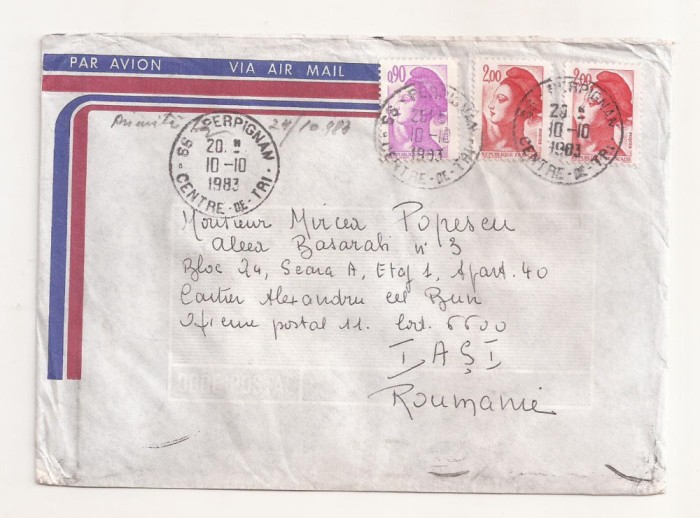 PAR AVION VIA AIR MAIL
0,90 2,00 2,00
24/10 983
66 PERPIGNAN
20 H
10-10
1983
CENTRE-DE-TRI
66 PERPIGNAN
10-10
1983
CENTRE-DE-TRI
66 PERPIGNAN
20 H
10-10
1983
CENTRE-DE-TRI
Monsieur Mircea Popescu
Aleea Basarabi n° 3
Bloc 24, Scara A, Etaj 1, Apart. 40
Cartier Alexandru cel Bun
Oficiul postal 11. Cod. 6600
IAȘI
Roumanie